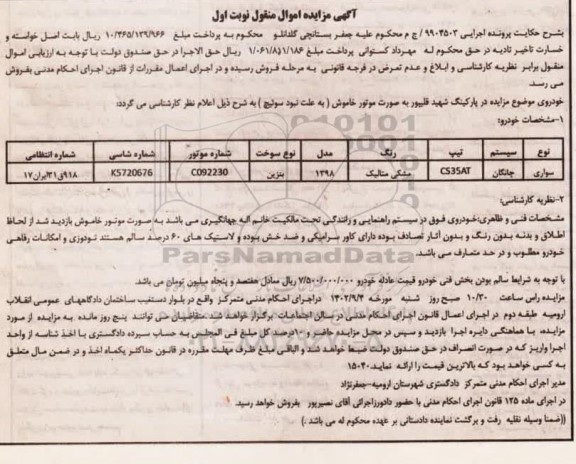 آگهی مزایده اموال منقول نوبت اول
بشرح حکایت پرونده اجرایی ۹۹۰۴۵۰۳ / ج م محکوم علیه جعفر بستانچی گلدانلو محکوم به پرداخت مبلغ ۱۰/۴۶۵/۱۳۹/۹۶۶ ریال بابت اصل خواسته و
خسارت تاخیر تادیه در حق محکوم له مهرداد کستوانی پرداخت مبلغ ۱/۰۶۱/۸۵۱/۱۸۶ ریال حق الاجرا در حق صندوق دولت با توجه به ارزیابی اموال
منقول برابر نظریه کارشناسی و ابلاغ و عدم تعرض در فرجه قانونی به مرحله فروش رسیده و در اجرای اعمال مقررات از قانون اجرای احکام مدنی بفروش
می رسد.
خودروی موضوع مزایده در پارکینگ شهید قلیپور به صورت موتور خاموش ( به علت نبود سوئیچ ) به شرح ذیل اعلام نظر کارشناسی می گردد:
۱-مشخصات خودرو:
نوع سیستم تیپ رنگ مدل نوع سوخت شماره موتور شماره شاسی شماره انتظامی
سواری چانگان CS35AT مشکی متالیک ۱۳۹۸ بنزین C092230 K5720676 ۹۱۸ق۳۱ایران۱۷
۲-نظریه کارشناسی:
مشخصات فنی و ظاهری:خودروی فوق در سیستم راهنمایی و رانندگی تحت مالکیت خانم اله جهانگیری می باشد به صورت موتور خاموش بازدید شد از لحاظ
اطلاق و بدنه بدون رنگ و بدون آثار تصادف بوده دارای کاور سرامیکی و ضد خش بوده و لاستیک های ۶۰ درصد سالم هستند تودوزی و امکانات رفاهی
خودرو مطلوب و در حد متعارف می باشد.
با توجه به شرایط سالم بودن بخش فنی خودرو قیمت عادله خودرو ۷/۵۰۰/۰۰۰/۰۰۰ ریال معادل هفتصد و پنجاه میلیون تومان می باشد.
مزایده راس ساعت ۱۰/۳۰ صبح روز شنبه مورخه ۱۴۰۲/۹/۴ دراجرای احکام مدنی متمرکز واقع در بلوار دستغیب ساختمان دادگاههای عمومی انقلاب
ارومیه طبقه دوم در اجرای اعمال قانون اجرای احکام مدنی در سالن اجتماعات برگزار خواهد شد متقاضیان می توانند پنج روز مانده به مزایده از مورد
مزایده، با هماهنگی دایره اجرا بازدید و سپس در محل مزایده حاضر و ۱۰درصد کل مبلغ فی المجلس به حساب سپرده دادگستری با اخذ شناسه از واحد
اجرا واریز که در صورت انصراف در حق صندوق دولت ضبط خواهد شد و الباقی مبلغ ظرف مهلت مقرره در قانون حداکثر یکماه اخذ و در ضمن مال متعلق
به کسی خواهد بود که بالاترین قیمت را ارائه نماید.۱۵۰۴۰
مدیر اجرای احکام مدنی متمرکز دادگستری شهرستان ارومیه-جعفرنژاد
در اجرای ماده ۱۲۵ قانون اجرای احکام مدنی با حضور دادورزاجرائی آقای نصیرپور بفروش خواهد رسید.
((ضمنا وسیله نقلیه رفت و برگشت نماینده دادستانی بر عهده محکوم له می باشد .)
ParsNamadData